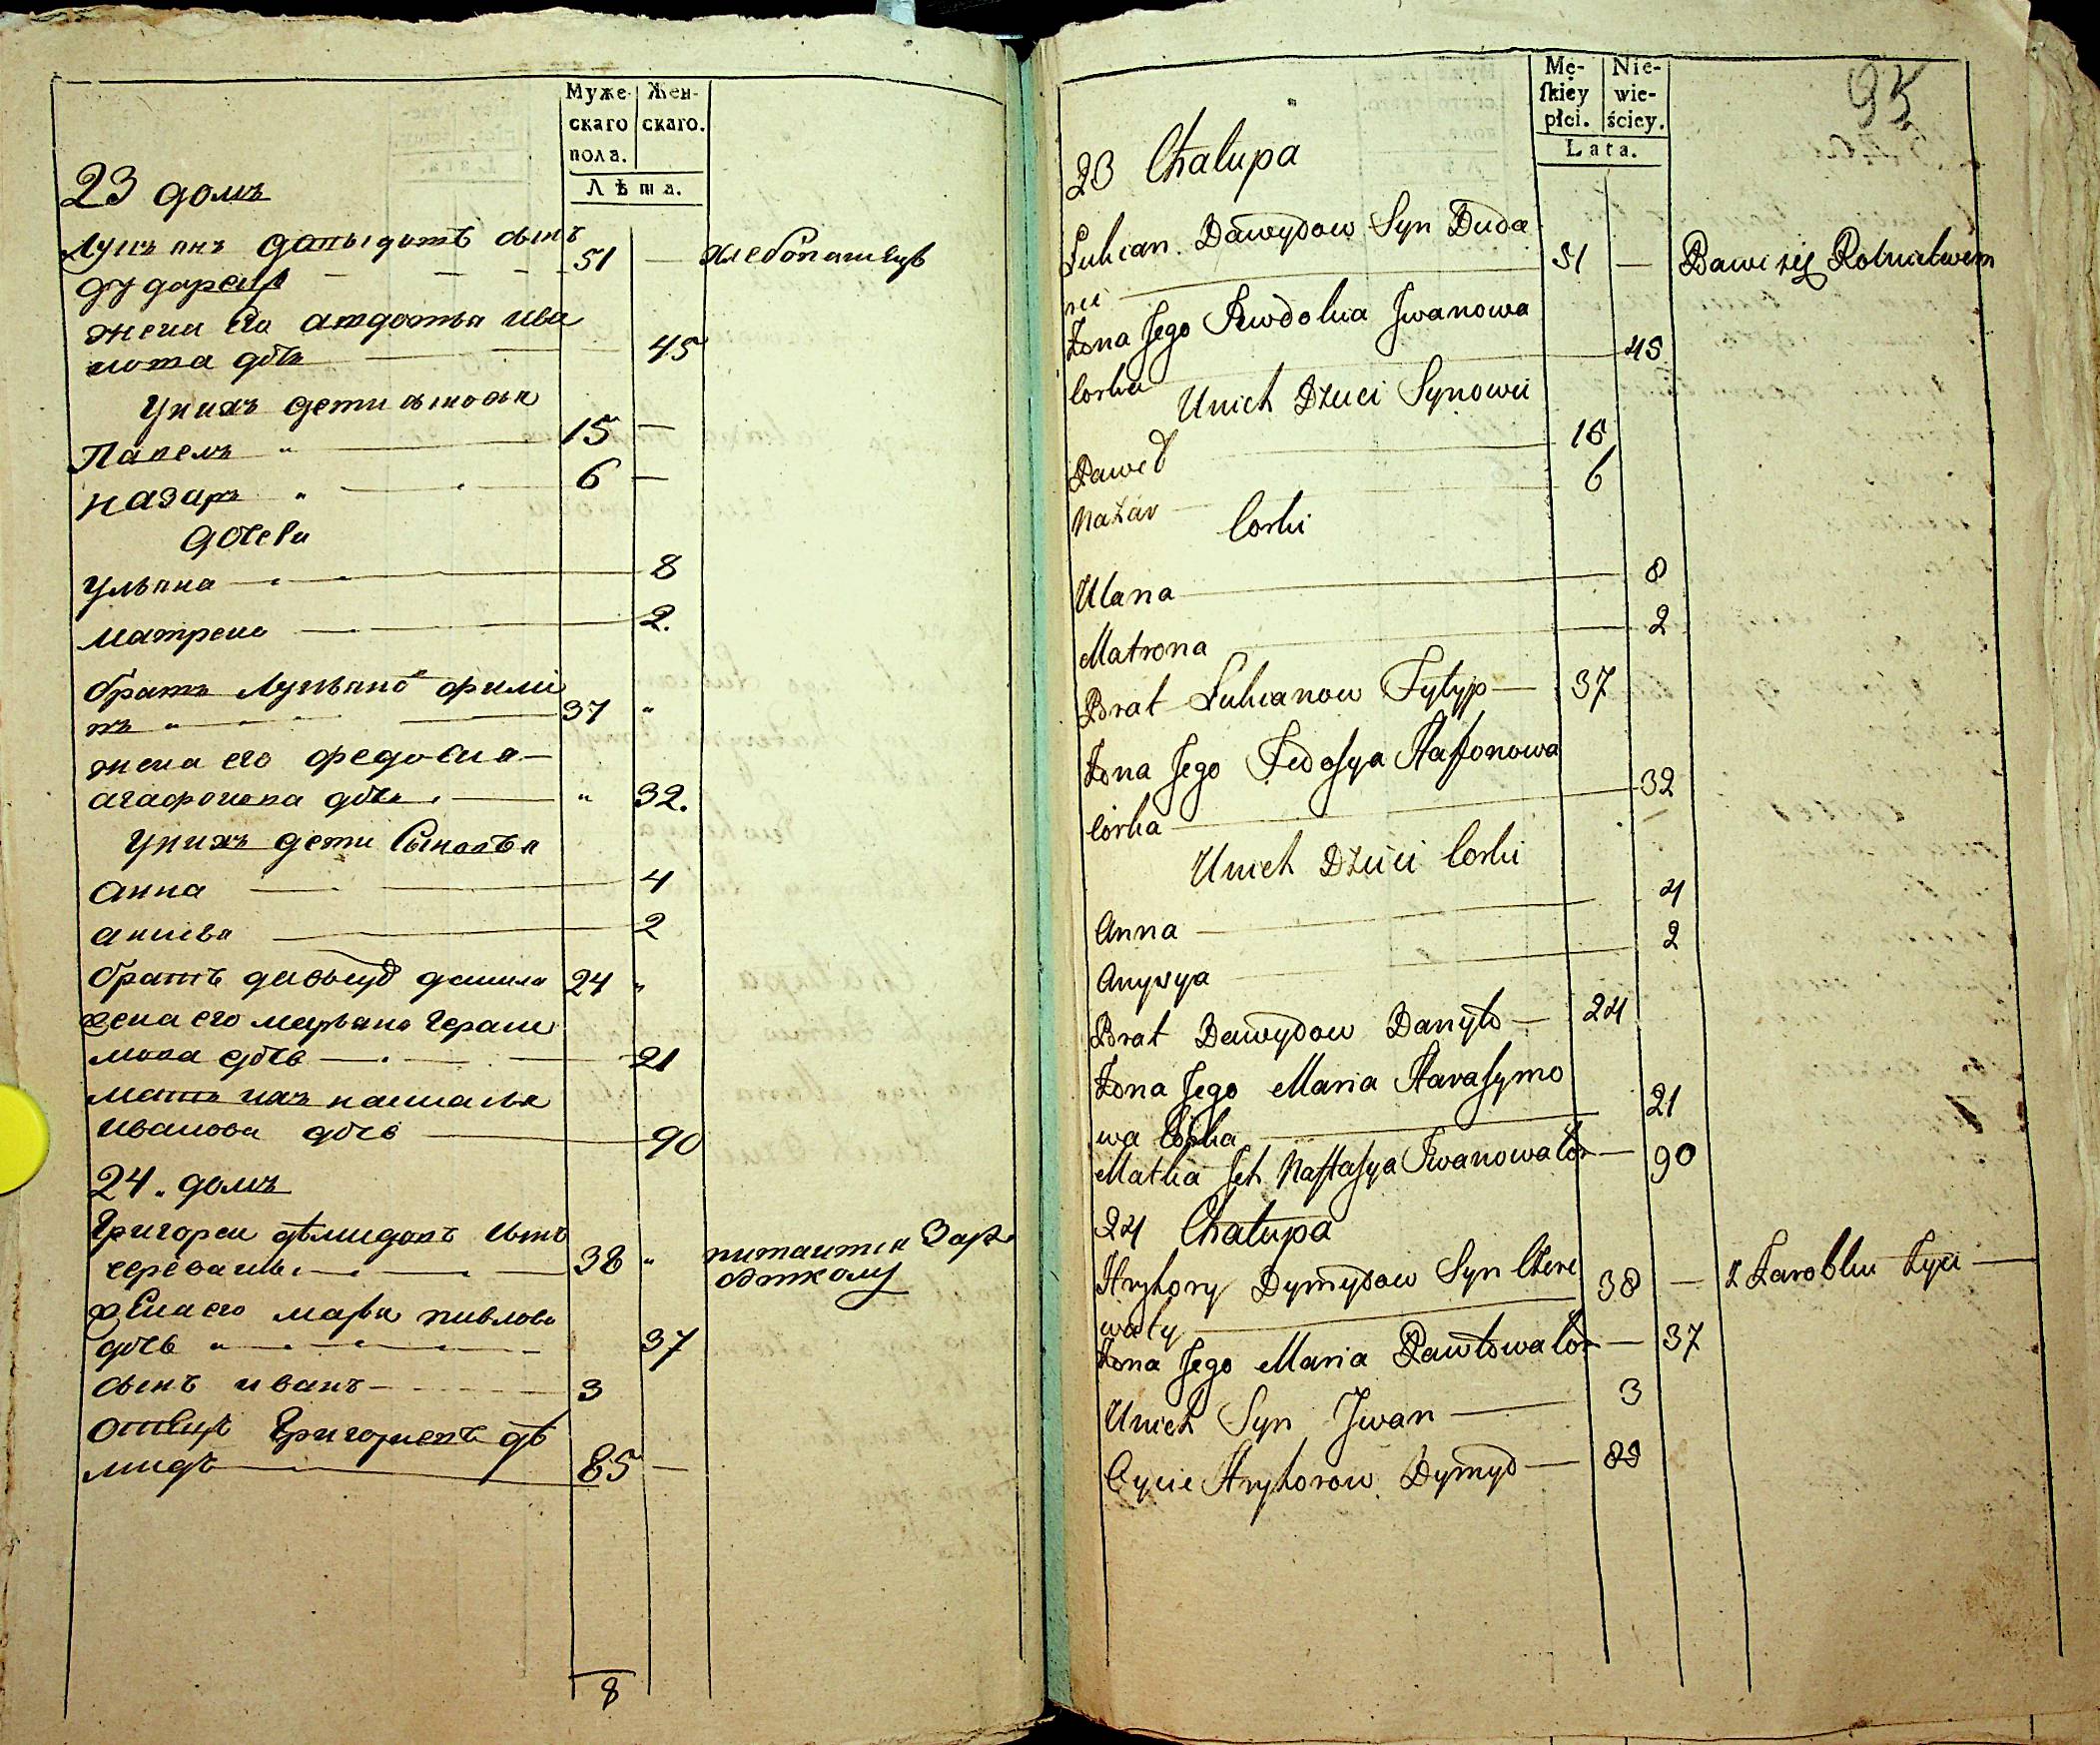 Муже-
скаго
пола.
Жен-
скаго.
Лѣта.
23 домъ
Лукъянъ давыдовъ сынъ
51 — хлебопашецъ
дударекъ
жена его авдотья ива
нова дочь 45
У нихъ дети сыновья
Павелъ 15 —
назаръ 6 —
дочери
ульяна 8
матрена 2.
братъ Лукьяновъ фили
пъ 37 "
жена его федосья
агафонова дочь " 32.
У нихъ дети
анна 4
анисья 2
братъ давыдовъ данила 24 "
жена его марьяна Гераси
мова дочь 21
мать ихъ настасья
иванова дочь 90
24. домъ
Григореи дѣмидовъ сынъ
38 " питаится Зар
жена его марья павлова
дочь 37
сынъ иванъ 3
отецъ Григорьевъ дѣ
мидъ 85 —
8
Mę-
skiey
płci.
Nie-
wie-
ściey.
Lata.
95
23 Chalupa
Lukian Dawydow Syn Duda
51 — Bawi się Rolnictwem
Żona Jego Iwanowa
Corka 45
Unich Dzieci Synowie
Paweł 15
Nazar 6
Corki
Ulana 8
Matrona 2
Brat Lukianow Fylyp — 37
Żona Jego Fedosya Hafonowa
Corka 32
Unich Dzieci Corki
Anna 4
Anysya 2
Brat Dawydow Danyło — 24
Żona Jego Maria Harasymo
wa Corka 21
Matka Ich Nastasya Iwanowa Cor — 90
24 Chalupa
Hryhory Dymydow Syn Czere
waty 38 — z Zarobku żyie —
Żona Jego Maria Pawłowa Cor — 37
Unich Syn Iwan — 3
Oycie Hryhorow Dymyd — 85